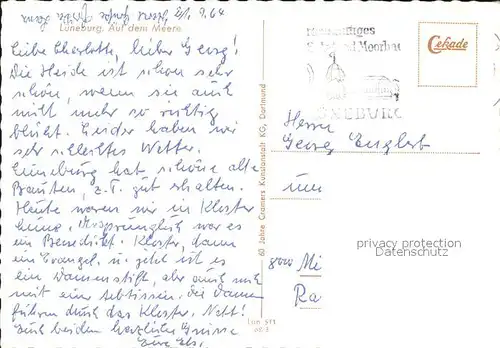 Lüneburg. Auf dem Meere
Liebe Charlotte, lieber Georg!
Die Heide ist schon sehr
schön, wenn sie auch
nicht mehr so richtig
blüht. Leider haben wir
sehr schlechtes Wetter.
Lüneburg hat schöne alte
Bauten, z.T. gut erhalten.
Heute waren wir im Kloster
Lüne. Ursprünglich war es
ein Benedikt. Kloster, dann
ein Evangel. u. jetzt ist es
ein Damenstift, aber auch noch
mit einer Äbtissin. Die Damen
führen durch das Kloster. Nett!
Euch beiden herzliche Grüsse
Eure Els.
60 Jahre Cramers Kunstanstalt KG, Dortmund
Moorbad
LÜNEBURG
Cekade
Herrn
Georg Englert
privacy protection
Datenschutz
8000 Mü
Ra